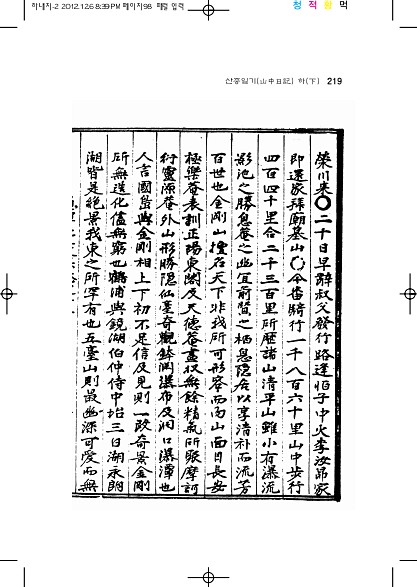 하내지-2 2012.12.6 8:39 PM 페이지98
청 적 황 먹
산중일기(山中日記) 하(下) 219
榮川來○二十日早辭叔父發行路逢怕子中火李汝昴家
卽還家拜廟墓山○今番騎行一千八百六十里山中步行
四百四十里合二千三百里所歷諸山淸平山雖小有瀑流
影池之勝息菴之幽宜前賢之栖息隱居以享淸福而流芳
百世也金剛山擅名天下非我所可形容而內山面目長安
極樂菴表訓正陽東閣及天德菴盡收無餘精氣所聚摩訶
衍靈源菴外山形勝隱仙臺奇觀鉢淵瀑布及洞口瀑潭也
人言國島與金剛相上下初不足信及見則一段奇景金剛
所無造化儘無窮也鶴浦與鏡湖伯仲侍中坮三日湖永郞
湖皆是絶景我東之所罕有也五臺山則最幽深可愛而無